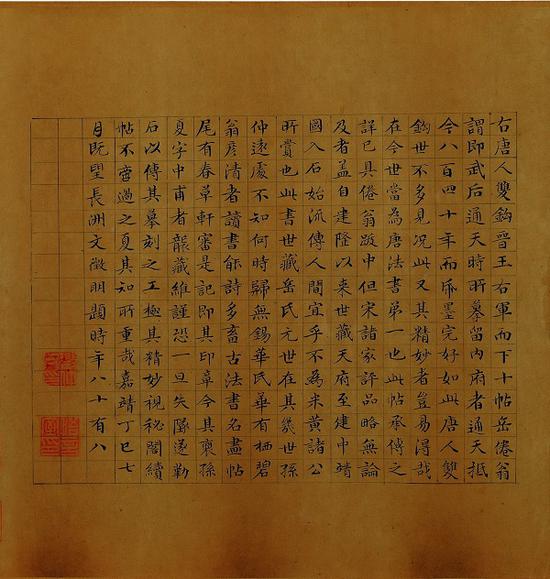 右唐人雙鉤晉王右軍而下十帖岳倦翁
謂即武后通天時所摹留内府者通天抵
今八百四十年而紙墨完好如此唐人雙
鉤世不多見況此又其精妙者豈易得哉
在今世當為唐法書第一也此帖承傳之
詳已具倦翁跋中但宋諸家評品略無論
及者盖自建隆以来世藏天府至建中靖
國入石始流傳人間宜乎不為米黄諸公
所賞也此書世藏岳氏元世在其幾世孫
仲遠處不知何時歸無錫華氏華有栖碧
翁彦清者讀書能詩多畜古法書名畫帖
尾有春草軒審是記即其印章今其裔孫
夏字中甫者襲藏維謹恐一旦失墜遂勒
石以傳其摹刻之工極其精妙視秘閣續
帖不啻過之夏其知所重哉嘉靖丁巳七
月既望長洲文徵明題時年八十有八